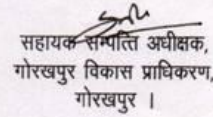 सहायक सम्पत्ति अधीक्षक,
गोरखपुर विकास प्राधिकरण,
गोरखपुर ।